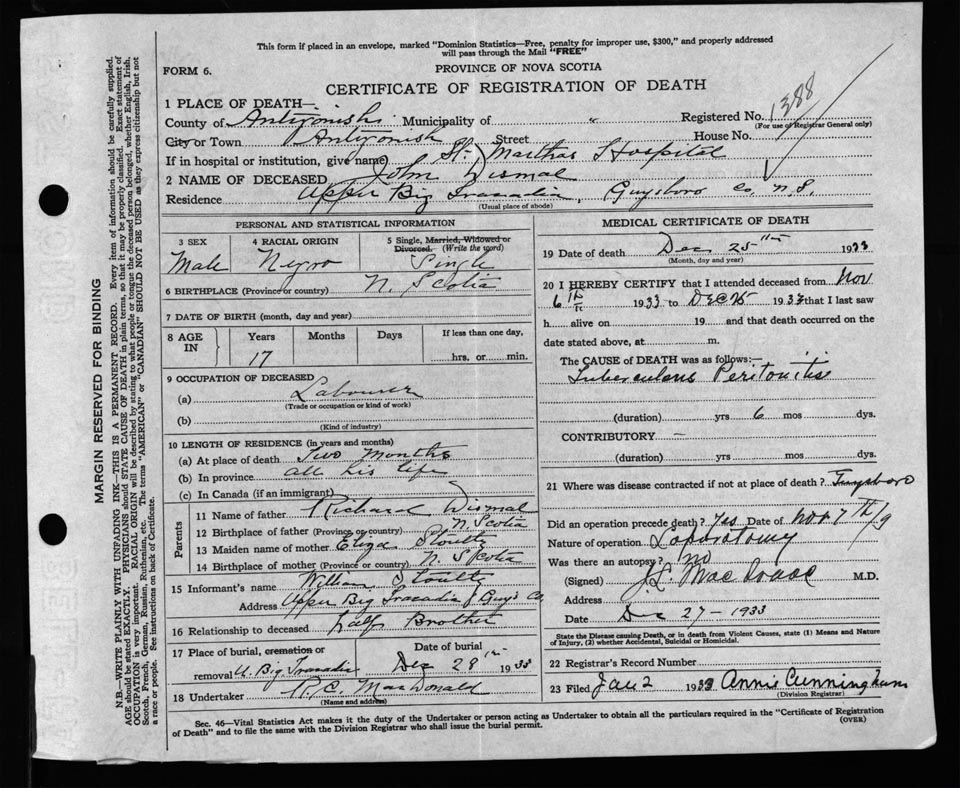 This form if placed in an envelope, marked "Dominion Statistics—Free, penalty for improper use, $300," and properly addressed
will pass through the Mail "FREE"
FORM 6.
PROVINCE OF NOVA SCOTIA
CERTIFICATE OF REGISTRATION OF DEATH
1388
1 PLACE OF DEATH—
County of Antigonish Municipality of " Registered No.
(For use of Registrar General only)
City or Town Antigonish Street House No.
If in hospital or institution, give name) St. Marthas Hospital
2 NAME OF DECEASED John Dismal
Residence Upper Big Tracadie, Guysboro Co. N.S.
(Usual place of abode)
PERSONAL AND STATISTICAL INFORMATION
3 SEX 4 RACIAL ORIGIN 5 Single, Married, Widowed or
Divorced. (Write the word)
Male Negro Single
6 BIRTHPLACE (Province or country) N. Scotia
7 DATE OF BIRTH (month, day and year)
8 AGE IN Years Months Days If less than one day,
17 hrs. or min.
9 OCCUPATION OF DECEASED
(a) Labourer
(Trade or occupation or kind of work)
(b)
(Kind of industry)
10 LENGTH OF RESIDENCE (in years and months)
(a) At place of death Two Months
(b) In province all his life
(c) In Canada (if an immigrant)
Parents
11 Name of father Richard Dismal
12 Birthplace of father (Province or country) N. Scotia
13 Maiden name of mother Eliza Stoultz
14 Birthplace of mother (Province or country) N. Scotia
15 Informant's name William Stoultz
Address Upper Big Tracadie Guy's Co.
16 Relationship to deceased half Brother
17 Place of burial, cremation or Date of burial
removal U. Big Tracadie Dec 28th 1933
18 Undertaker R. C. MacDonald
(Name and address)
MEDICAL CERTIFICATE OF DEATH
19 Date of death Dec 25th 1933
(Month, day and year)
20 I HEREBY CERTIFY that I attended deceased from Nov
6th 1933 to Dec 25 1933 that I last saw
h alive on 19 and that death occurred on the
date stated above, at m.
The CAUSE of DEATH was as follows:—
Tuberculous Peritonitis
(duration) yrs 6 mos dys.
CONTRIBUTORY —
(duration) yrs. mos. dys.
21 Where was disease contracted if not at place of death? Guysboro
Did an operation precede death? Yes Date of Nov 7th
Nature of operation Laparotomy
Was there an autopsy? no
(Signed) M.D.
Address
Date Dec 27-1933
State the Disease causing Death, or in death from Violent Causes, state (1) Means and Nature
of Injury, (2) whether Accidental, Suicidal or Homicidal.
22 Registrar's Record Number
23 Filed Jan 2 Annie Cunningham
(Division Registrar)
Sec. 46—Vital Statistics Act makes it the duty of the Undertaker or person acting as Undertaker to obtain all the particulars required in the "Certificate of Registration
of Death" and to file the same with the Division Registrar who shall issue the burial permit.
(OVER)
MARGIN RESERVED FOR BINDING
N.B.—WRITE PLAINLY WITH UNFADING INK—THIS IS A PERMANENT RECORD. Every item of information should be carefully supplied.
AGE should be stated EXACTLY. PHYSICIANS should STATE CAUSE OF DEATH in plain terms, so that it may be properly classified. Exact statement of
OCCUPATION is very important. RACIAL ORIGIN will be described by stating to what people or tongue the deceased person belonged, whether English, Irish,
Scotch, French, German, Russian, Ruthenian, etc. The terms "AMERICAN" or "CANADIAN" SHOULD NOT BE USED as they express citizenship but not
a race or people. See instructions on back of Certificate.